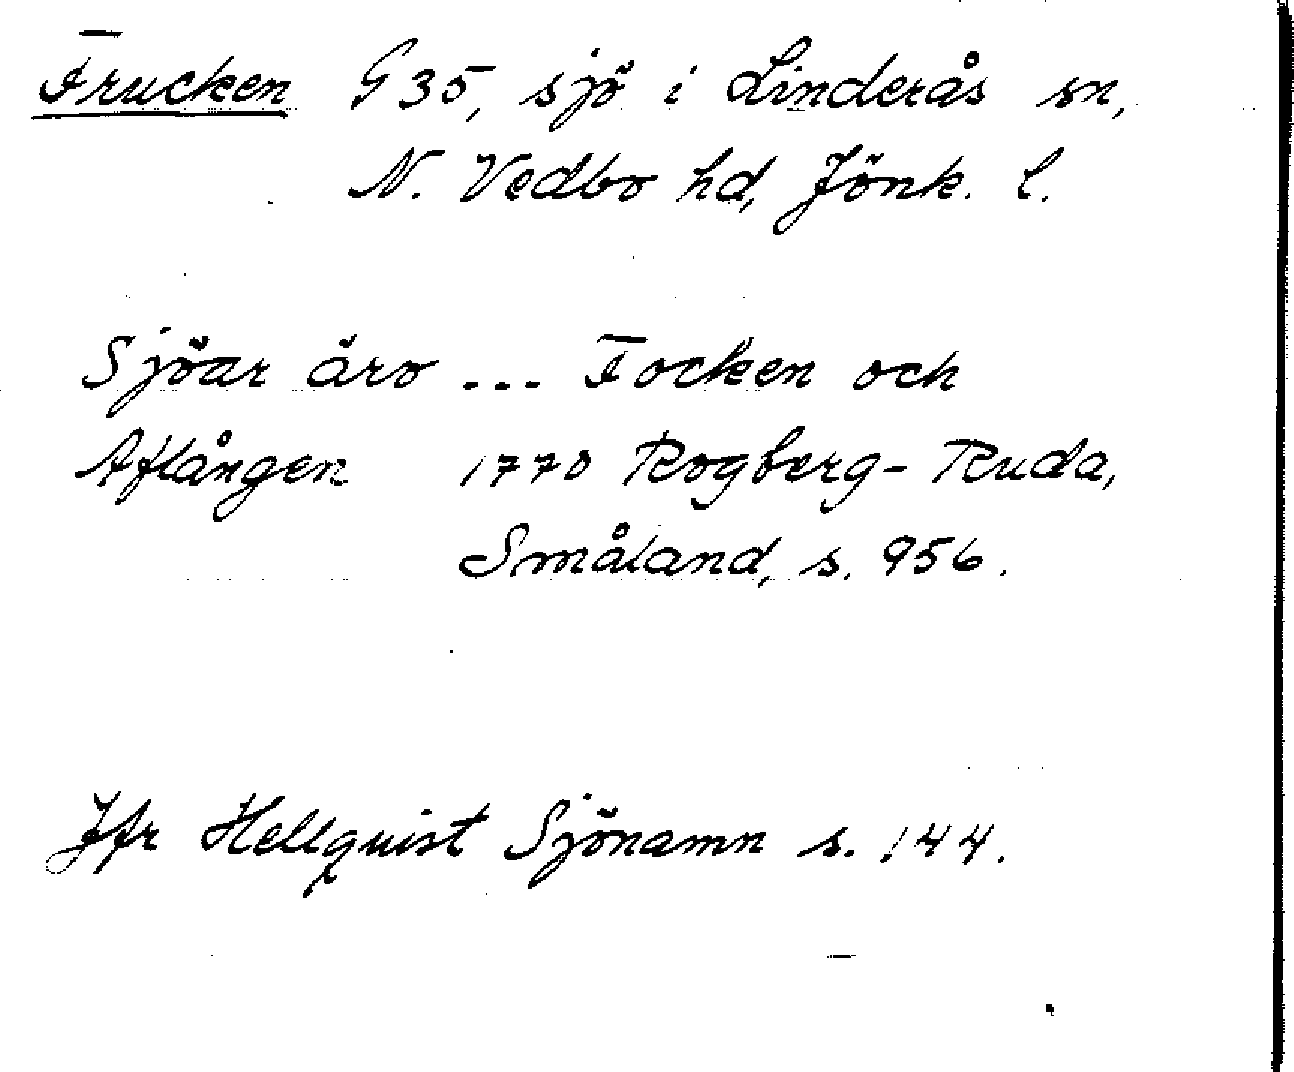 Frucken G 35, sjö i Linderås sn,
N. Vedbo hd, Jönk. l.
Sjöar äro ... Focken och
Aflången 1770 Rogberg-Ruda,
Småland, s. 956.
Jfr Hellquist Sjönamn s. 144.